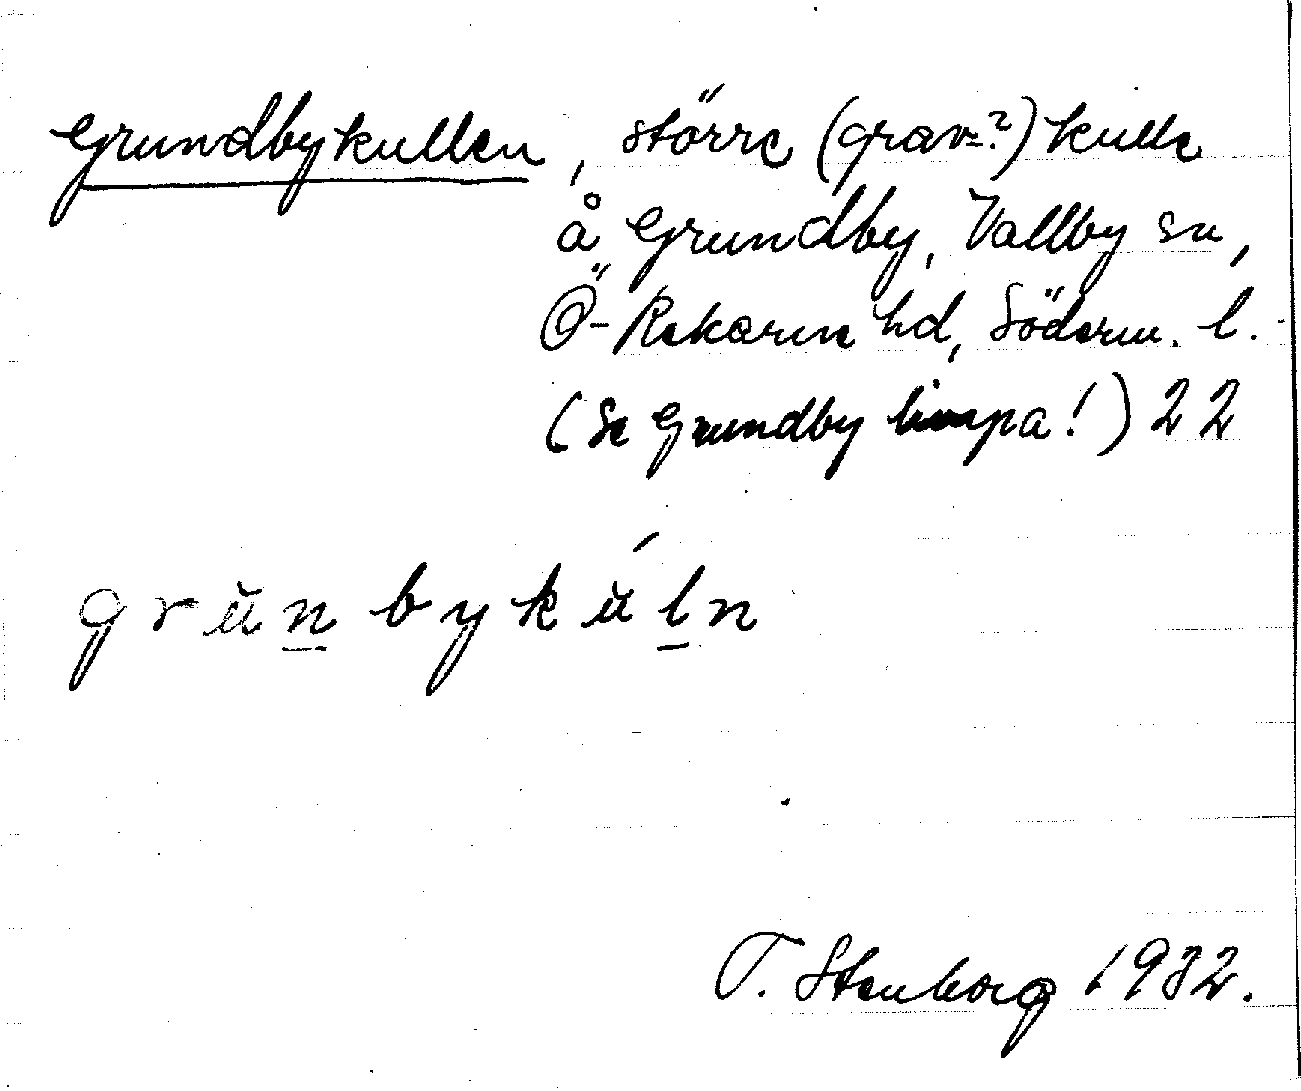 Grundbykullen, större (grav-?) kulle
å Grundby, Vallby sn,
Ö-Rekarne hd, Söderm. l.
(Se Grundby limpa!) 22
grŭn̲bykŭ́l̲n
T. Stenborg 1932.